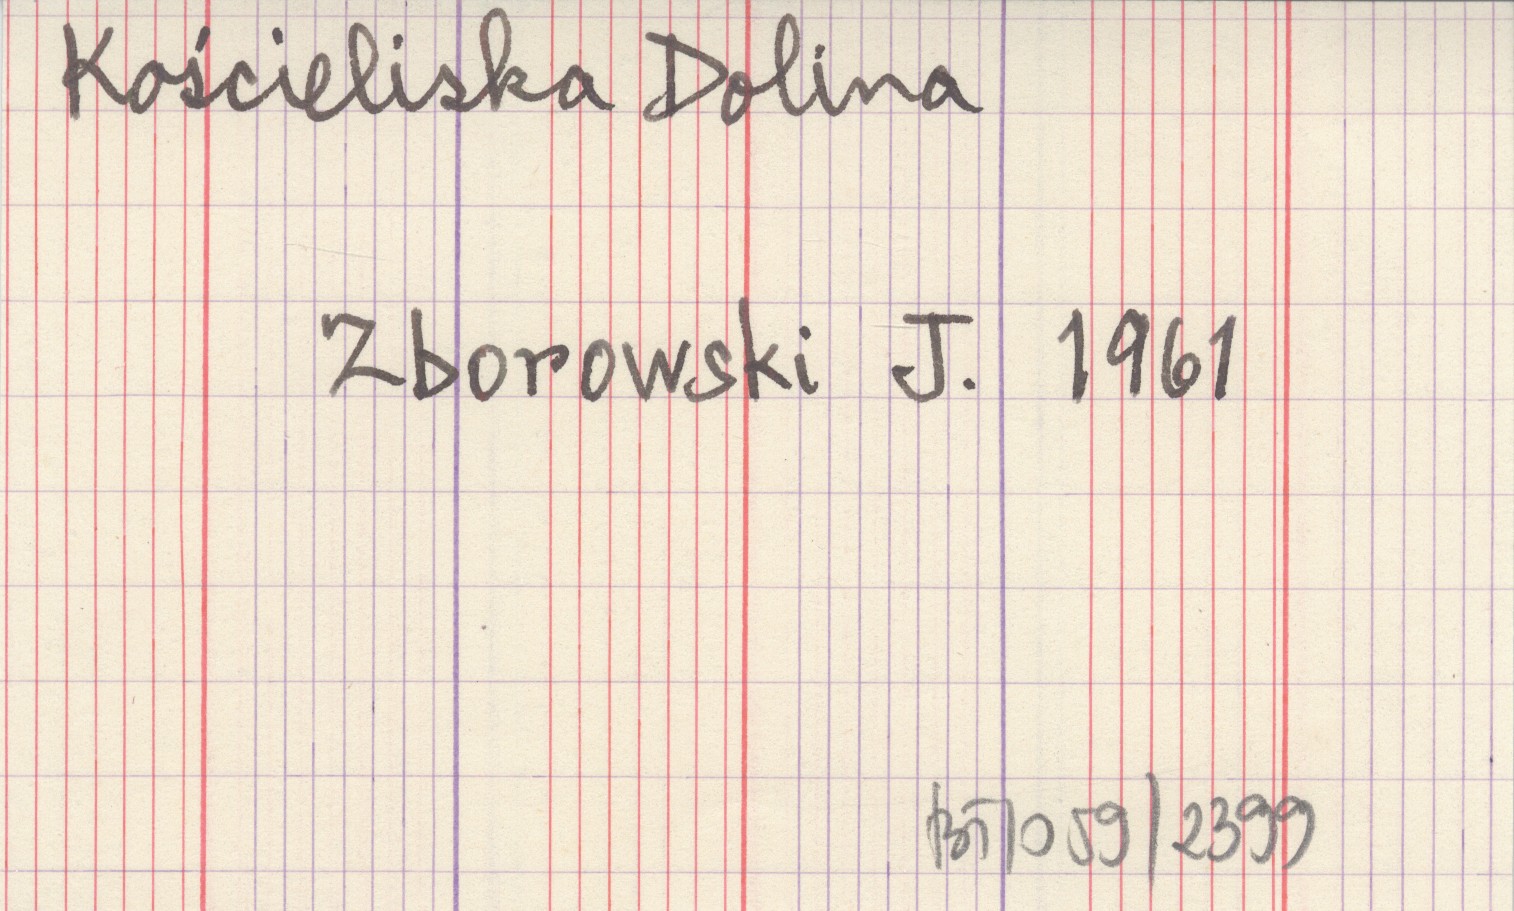 Kościeliska Dolina
Zborowski J. 1961
BT/059/2399